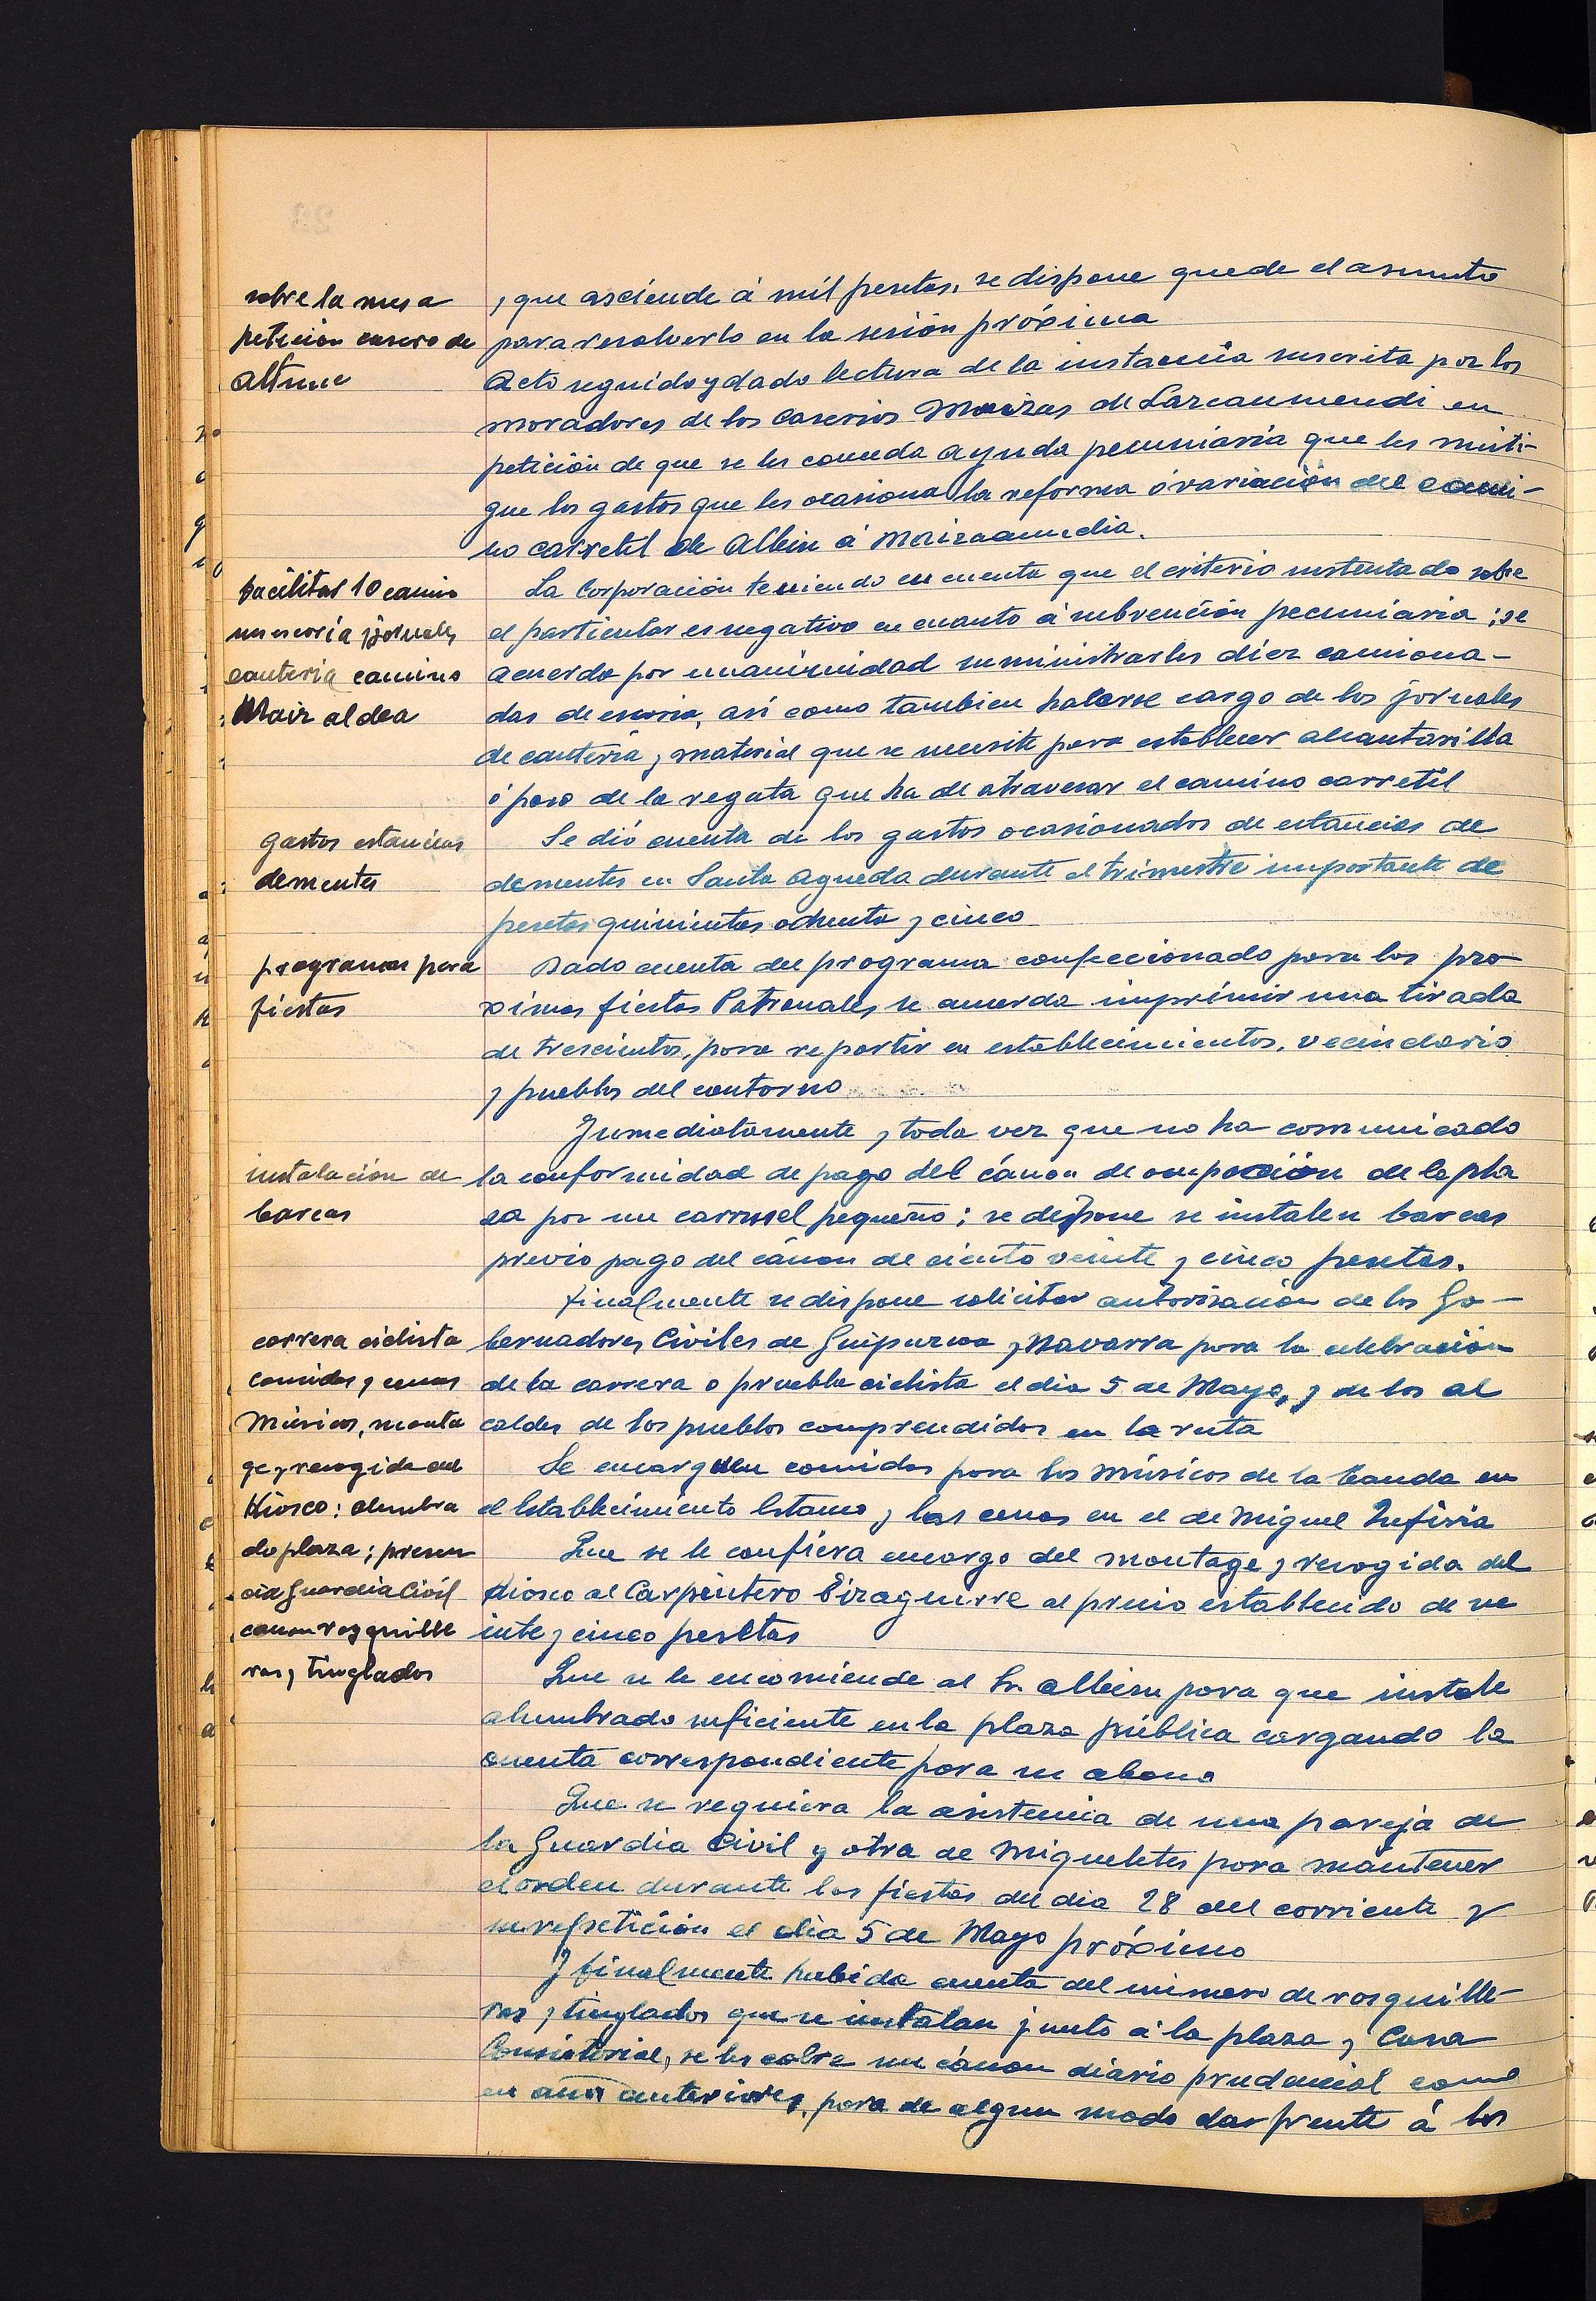 sobre la mesa
petición casero de
altune
, que asciende á mil pesetas, se dispone quede el asunto
para resolverlo en la sesión próxima
Acto seguido y dado lectura de la instancia suscrita por los
moradores de los caserios Maizas de Larcaumendi en
petición de que se les conceda ayuda pecuniaria que les miti-
gue los gastos que les ocasiona la reforma ó variación del cami-
no carretil de Albin á
facilitar 10 camio
nes escoria jornales
canteria camino
Maiz aldea
La Corporación teniendo en cuenta que el criterio sustentado sobre
el particular es negativo en cuanto á subvención pecuniaria; se
acuerda por unanimidad suministrarles diez camiona-
das de escoria, asi como tambien haberse cargo de los jornales
de cantería y material que se necesite para establecer alcantarilla
ó paso de la regata que ha de atravesar el camino carretil
gastos estancias
dementes
Se dió cuenta de los gastos ocasionados de estancias de
dementes en Santa Agueda durante el trimestre importante de
pesetas quinientas ochenta y cinco
programas para
fiestas
Dado cuenta del programa confeccionado para las pro
ximas fiestas Patronales se acuerda imprimir una tirada
de trescientos, para repartir en establecimientos, vecindario
y pueblos del contorno
instalación de
barcas
Inmediatamente y toda vez que no ha comunicado
la conformidad de pago del cánon de ocupación de la pla
za por un carrusel pequeño; se dispone se instalen barcas
previo pago del cánon de ciento veinte y cinco pesetas.
Finalmente se dispone solicitar autorización de los Go-
carrera ciclista
comidas y cenas
Músicos, monta
ge y recogida del
Kiosco: alumbra
do plaza; presen
cia Guardia Civil
canon rosquille
ras y tinglados
bernadores Civiles de Guipuzcoa y Navarra para la celebración
de la carrera o pruebla ciclista el dia 5 de Mayo, y de los al
caldes de los pueblos comprendidos en la ruta
Se encarguen comidas para los músicos de la banda en
el Establecimiento Ostamo, y las cenas en el de Miguel Zufiria
Que se le confiera encargo del montage y recogida del
Kiosco al Carpintero Eizaguirre al precio establecido de ve
inte y cinco pesetas
Que se le encomiende al Sr. Albisu para que instale
alumbrado suficiente en la plaza pública cargando la
cuenta correspondiente para su abono
Que se requiera la asistencia de una pareja de
la Guardia Civil y otra de Migueletes para mantener
el orden durante las fiestas del dia 28 del corriente y
su repetición el dia 5 de Mayo próximo
Y finalmente habida cuenta del número de rosquille-
ras y tinglados que se instalan junto á la plaza y Casa
Consistorial, se les cobre un cánon diario prudencial como
en años anteriores, para de algun modo dar frente á los